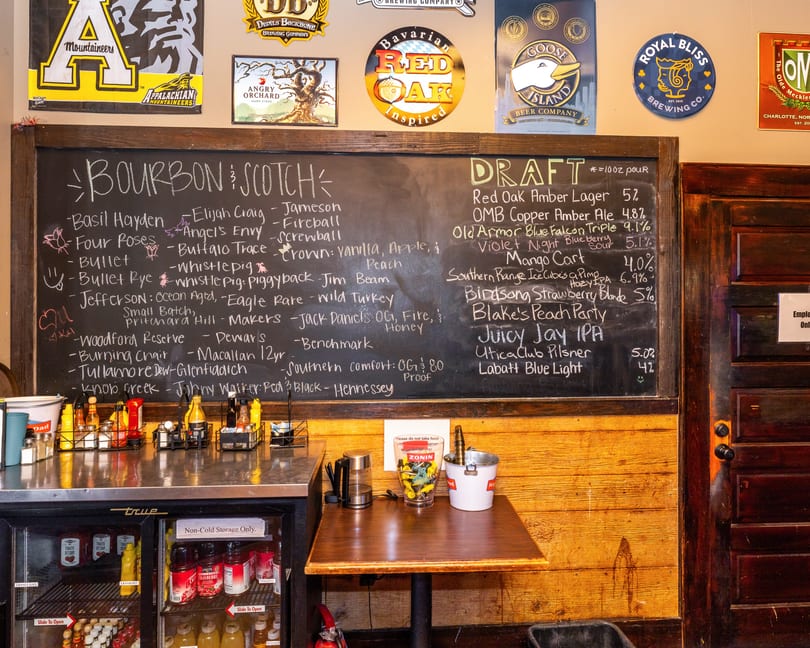 A
Mountaineers
APPALACHIAN
MOUNTAINEERS
DB
DEVILS BACKBONE
BREWING COMPANY
BREWING COMPANY
ANGRY
ORCHARD
Bavarian
RED
OAK
Inspired
GOOSE
ISLAND
BEER COMPANY
ROYAL BLISS
BREWING CO.
The Olde Meckle
OM
CHARLOTTE, NOR
BOURBON & SCOTCH
- Basil Hayden
- Four Roses
- Bullet
- Bullet Rye
- Jefferson: Ocean Aged,
Small Batch,
Pritchard Hill
- Woodford Reserve
- Burning Chair
- Tullamore Dew
- Knob Creek
- Elijah Craig
- Angel's Envy
- Buffalo Trace
- Whistlepig
- Whistlepig: Piggyback
- Eagle Rare
- Makers
- Dewars
- Macallan 12yr
- Glenfiddich
- Johny Walker: Red & Black
- Jameson
- Fireball
- Screwball
- Crown: Vanilla, Apple, &
Peach
- Jim Beam
- Wild Turkey
- Jack Daniels: OG, Fire, &
Honey
- Benchmark
- Southern Comfort: OG & 80
Proof
- Hennessy
DRAFT
* = 10oz pour
Red Oak Amber Lager 5%
OMB Copper Amber Ale 4.8%
Old Armor Blue Falcon Triple 9.1%
Violet Night Blueberry Sour 5.1%
Mango Cart 4.0%
Southern Range Ice Cubes a Pimp Hazy IPA 6.9%
Birdsong Strawberry Blonde 5%
Blake's Peach Party
Juicy Jay IPA
Utica Club Pilsner 5.0%
Labatt Blue Light 4%
Emplo
Onl
Please do not take food
ZONIN
true
Non-Cold Storage Only.
Slide To Open
Slide To Open